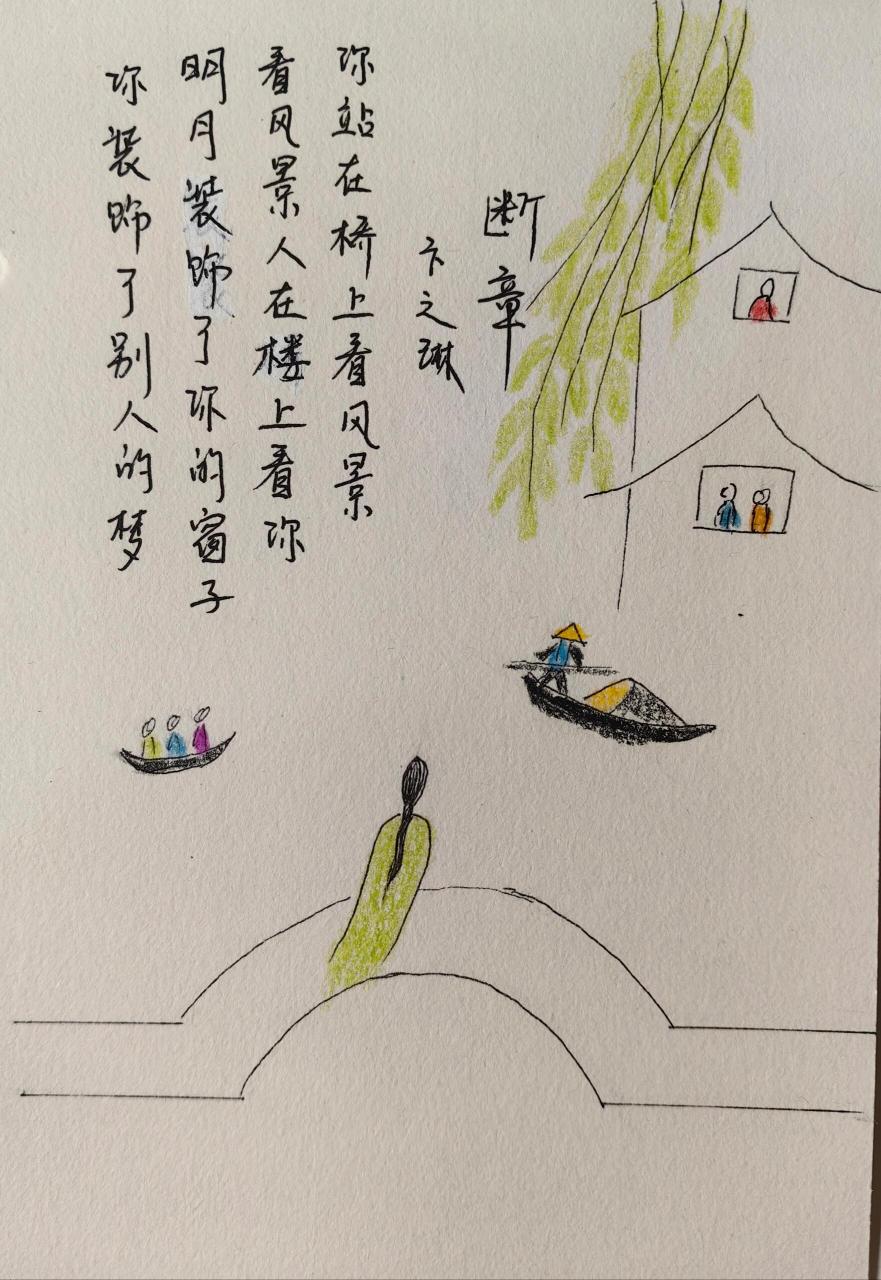 断章
卞之琳
你站在桥上看风景
看风景人在楼上看你
明月装饰了你的窗子
你装饰了别人的梦